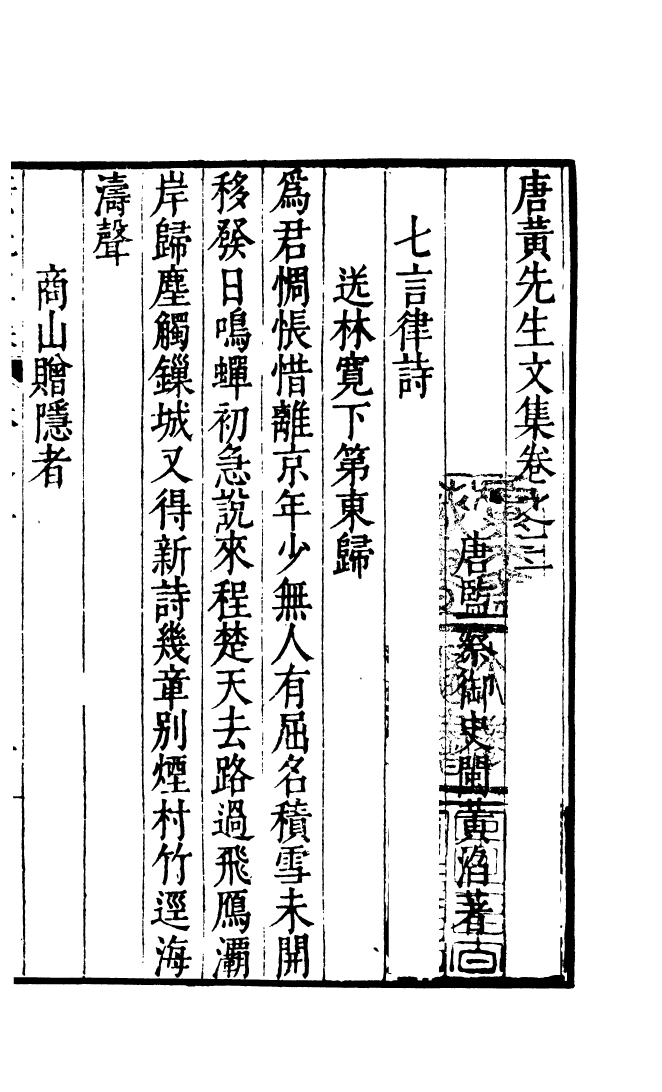 唐黃先生文集卷之三
唐監察御史閩黃滔著
七言律詩
送林寬下第東歸
為君惆悵惜離京年少無人有屈名積雪未開
移發日鳴蟬初急說來程楚天去路過飛鴈灞
岸歸塵觸鏁城又得新詩幾章別煙村竹逕海
濤聲
商山贈隱者